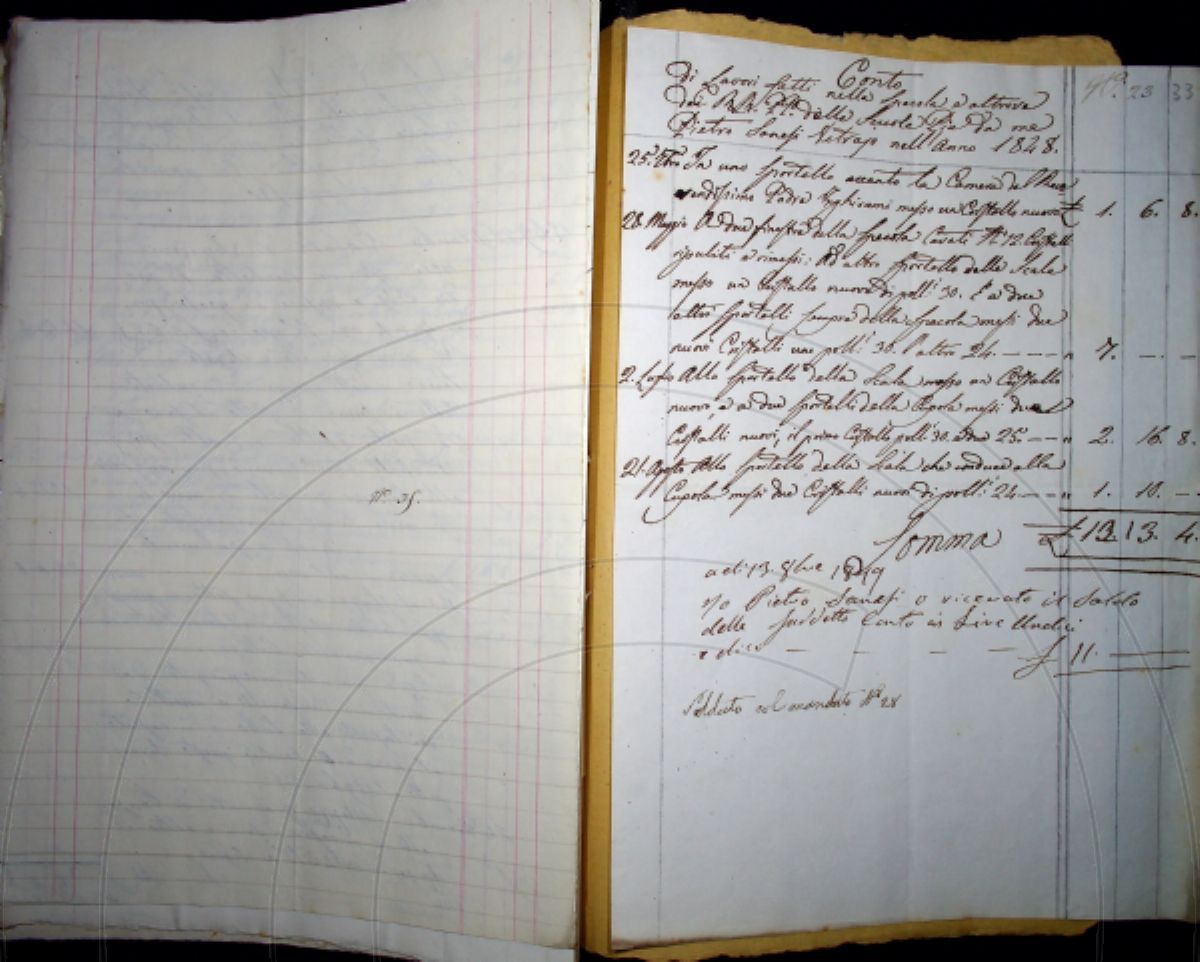 N.° 35.
N.° 23 33
Conto
Di Lavori fatti nella Specola e altrove
dei R.R. P.P. delle Scuole Pie da me
Pietro Sanesi Vetrajo nell'Anno 1848.
In uno Sportello accanto la Camera del Reve
rendissimo Padre Inghirami messo un Cristallo nuovo £ 1. 6. 8.
28. Maggio A due finestre della Specola Cavati N.° 12 Cristalli
ripuliti e rimessi: Ad altro Sportello delle Scale
messo un Cristallo nuovo di poll: 30. E a due
altri Sportelli sempre della Specola messi due
nuovi Cristalli uno poll: 30. l'altro 24. — — — " 7. — —
2. Luglio Allo Sportello della Scala messo un Cristallo
nuovo, e a due Sportelli della Cupola messi due
Cristalli nuovi, il primo Cristallo poll: 30. e due 25. — — " 2. 16. 8.
21. Agosto Allo Sportello della Scala che conduce alla
Cupola messi due Cristalli nuovi di poll: 24. — — " 1. 10. —
Somma £ 13. 13. 4.
a di 13. 9bre
Io Pietro Sanesi o ricevuto il Saldo
delle Suddetto Conto in Lire Undici
e dico — — — — £ 11. —
Saldato col mandato N.° 28